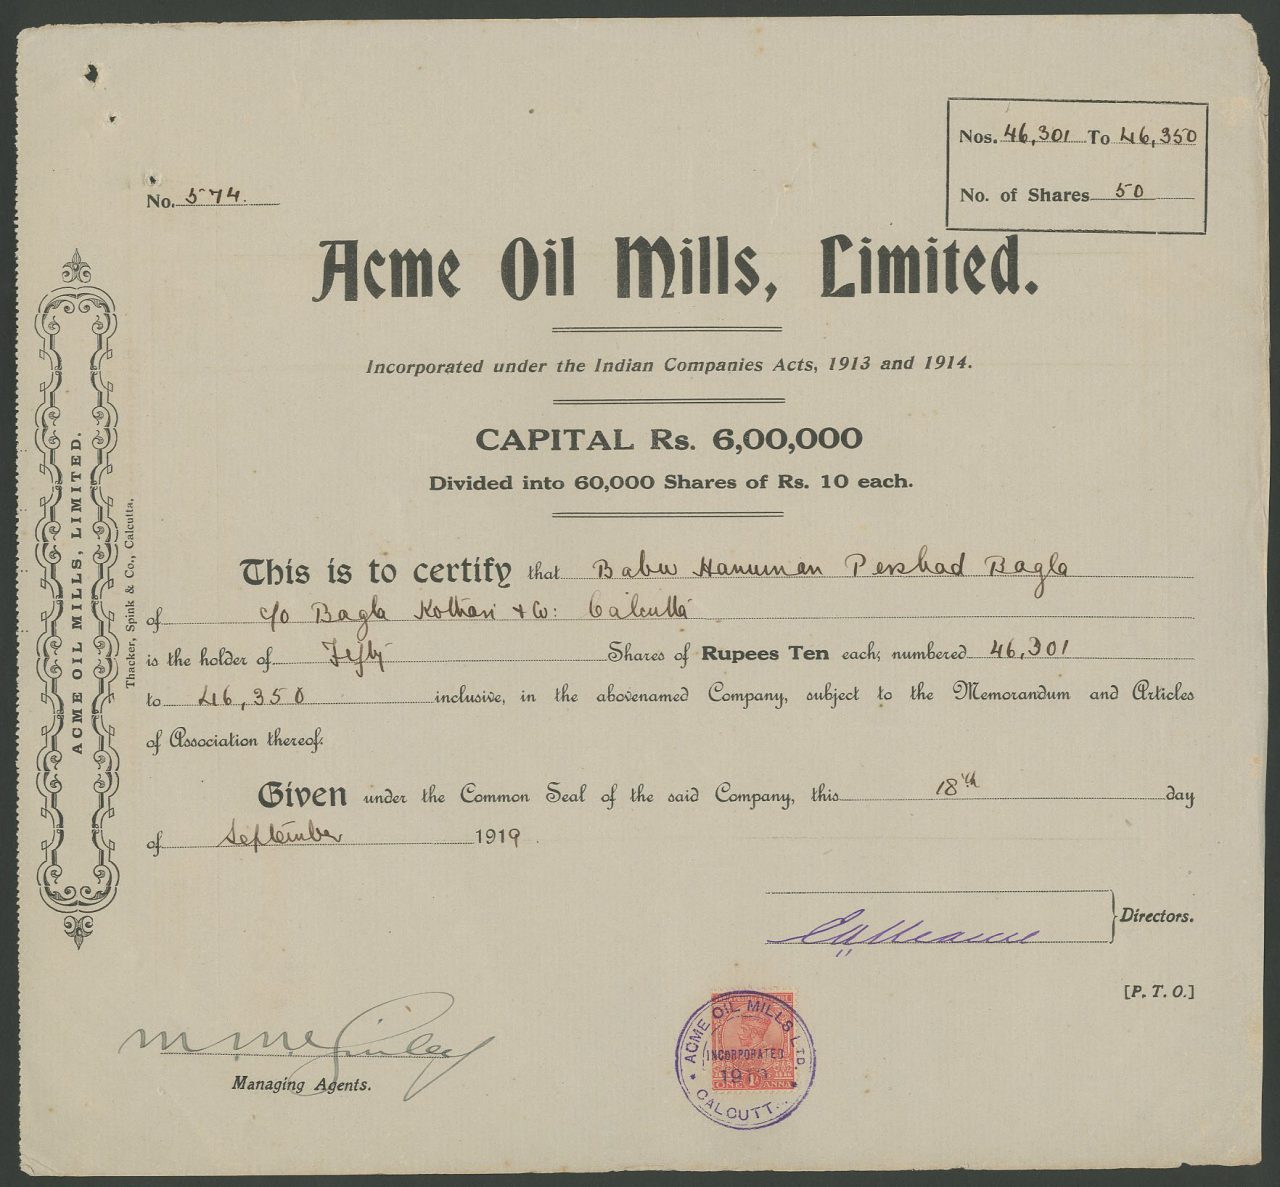 Nos. 46,301 To 46,350
No. 574.
No. of Shares 50
Acme Oil Mills, Limited.
Incorporated under the Indian Companies Acts, 1913 and 1914.
CAPITAL Rs. 6,00,000
Divided into 60,000 Shares of Rs. 10 each.
This is to certify that Babu Hanuman Pershad Bagla
of c/o Bagla Kothari & Co: Calcutta
is the holder of Fifty Shares of Rupees Ten each, numbered 46,301
to 46,350 inclusive, in the abovenamed Company, subject to the Memorandum and Articles
of Association thereof.
Given under the Common Seal of the said Company, this 18th day
of September 1919.
Directors.
[P. T. O.]
Managing Agents.
ACME OIL MILLS LTD.
INCORPORATED
CALCUTT
ONE 1A ANNA
ACME OIL MILLS, LIMITED.
Thacker, Spink & Co., Calcutta.